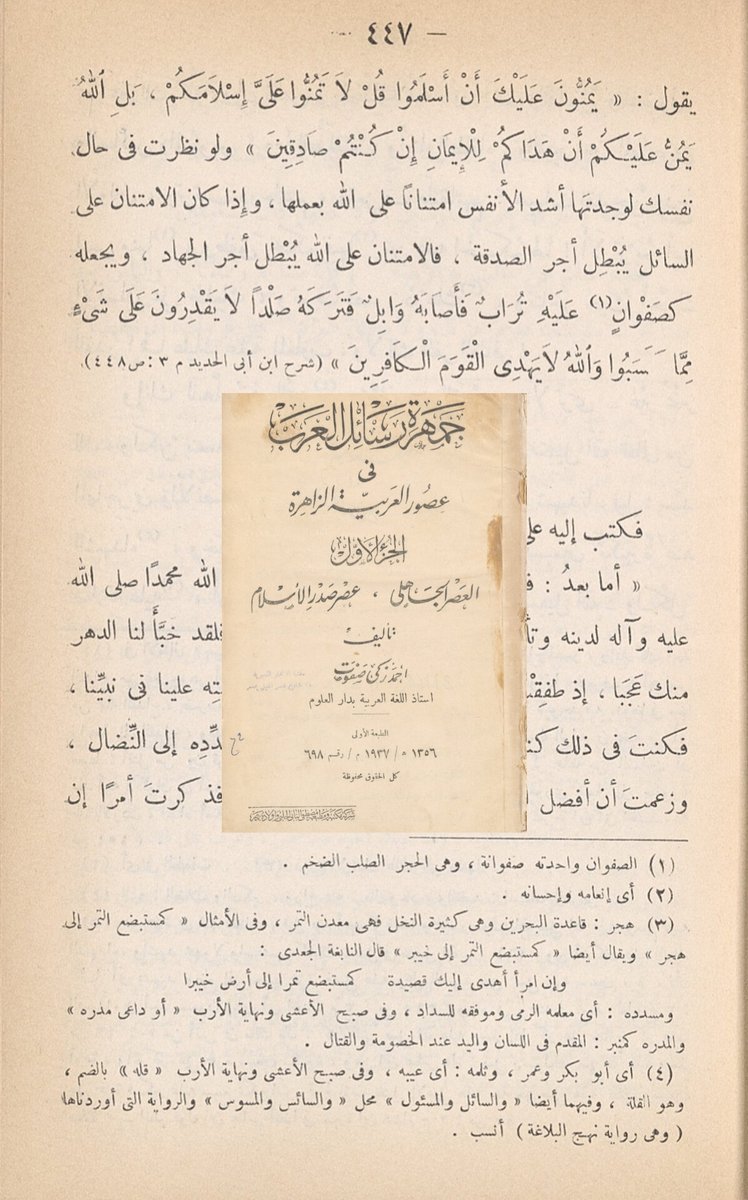 — ٤٤٧ —
يقول : « يَمُنُّونَ عَلَيْكَ أَنْ أَسْلَمُوا قُلْ لاَ تَمُنُّوا عَلَىَّ إِسْلاَمَكُمْ ، بَلِ ٱللهُ
يَمُنُّ عَلَيْكُمْ أَنْ هَدَاكُمْ لِلْإِيمَانِ إِنْ كُنْتُمْ صَادِقِينَ » ولو نظرت فى حال
نفسك لوجدتَها أشد الأنفس امتنانًا على الله بعملها ، وإذا كان الامتنان على
السائل يُبْطِل أجر الصدقة ، فالامتنان على الله يُبْطل أجر الجهاد ، ويجعله
كصَفْوَانٍ(١) عَلَيْهِ تُرَابٌ فَأَصَابَهُ وَابِلٌ فَتَرَكَهُ صَلْداً لاَ يَقْدِرُونَ عَلَى شَىْءٍ
مِمَّا سَبُوا وَٱللهُ لاَ يَهْدِى الْقَوْمَ الْكَافِرِينَ » (شرح ابن أبى الحديد م ٣ : ص ٤٤٨).
جمهرة رسائل العرب
فى
عصور العربية الزاهرة
الجزء الأول
العصر الجاهلى ، عصر صدر الإسلام
تأليف
احمد زكى صفوت
استاذ اللغة العربية بدار العلوم
الطبعة الأولى
١٣٥٦ ه / ١٩٣٧ م / رقم ٦٩٨
كل الحقوق محفوظة
فكتب إليه على
« أما بعدُ : ف الله محمدًا صلى الله
عليه وآله لدينه وتأ فلقد خبَّأ لنا الدهر
منك عَجَبا ، إذ طفِقْت ـته علينا فى نبيِّنا ،
فكنتَ فى ذلك كنـ ـدِّدِه إلى النِّضال ،
وزعمتَ أن أفضل فذكرتَ أمرًا إن
(١) الصفوان واحدته صفوانة ، وهى الحجر الصلب الضخم .
(٢) أى إنعامه وإحسانه .
(٣) هجر : قاعدة البحرين وهى كثيرة النخل فهى معدن التمر ، وفى الأمثال « كمستبضع التمر إلى
هجر » ويقال أيضا « كمستبضع التمر إلى خيبر » قال النابغة الجعدى :
وإن امرأ أهدى إليك قصيدة كمستبضع تمرا إلى أرض خيبرا
ومسدده : أى معلمه الرمى وموفقه للسداد ، وفى صبح الأعشى ونهاية الأرب « أو داعى مدره »
والمدره كمنبر : المقدم فى اللسان واليد عند الخصومة والقتال .
(٤) أى أبو بكر وعمر ، وثلمه : أى عيبه ، وفى صبح الأعشى ونهاية الأرب « قله » بالضم ،
وهو القلة ، وفيهما أيضا « والسائل والمسئول » محل « والسائس والمسوس » والرواية التى أوردناها
( وهى رواية نهج البلاغة ) أنسب .